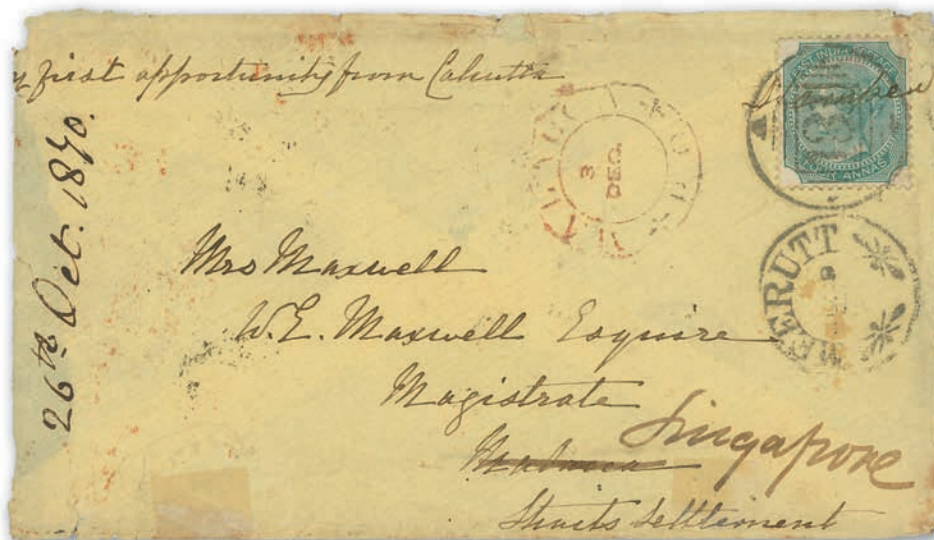 first opportunity from Calcutta
26th Oct. 1870.
EAST INDIA POSTAGE
ANNAS
3
DEC.
MEERUTT
Mrs Maxwell
W.E. Maxwell Esquire
Magistrate
Malacca Singapore
Straits Settlement